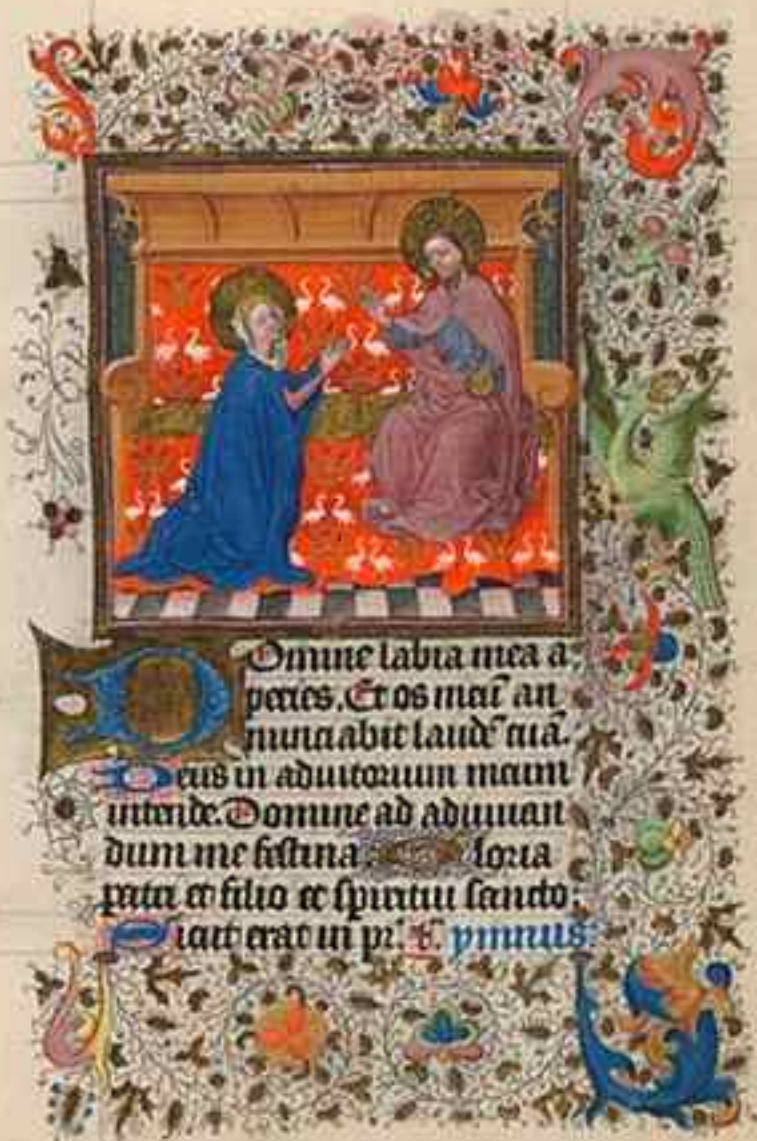 Domine labia mea a
peries. Et os meū an
nunciabit laudē tuā.
Deus in adiutorium meum
intende. Domine ad adiuuan
dum me festina. Gloria
patri et filio et spiritui sancto:
Sicut erat in pr̄. ymnus: